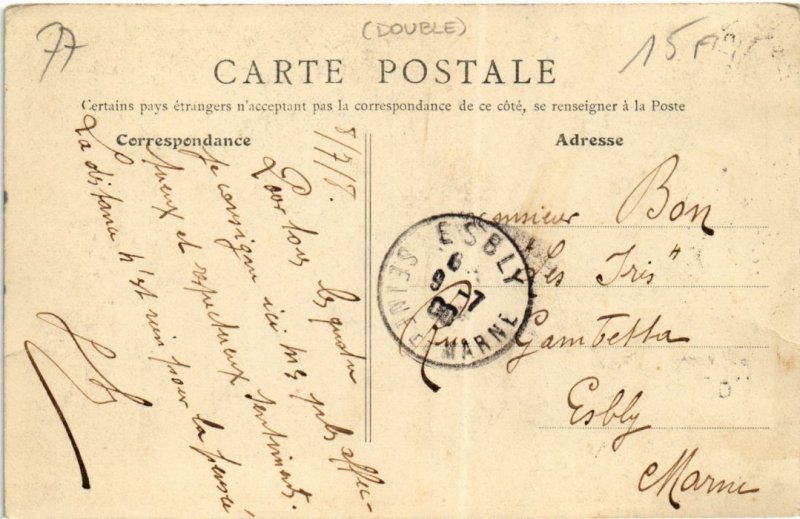 77
(DOUBLE)
15 F
CARTE POSTALE
Certains pays étrangers n'acceptant pas la correspondance de ce côté, se renseigner à la Poste
Correspondance
Adresse
8/7/8.
Pour tous les quatre
je consigne ici mes plus affec-
tueux et respectueux sentiments.
La distance n'est rien pour la pensée
Monsieur Bon
"Les Iris"
Rue Gambetta
Esbly
Marne
ESBLY
9-7
08
SEINE-ET-MARNE